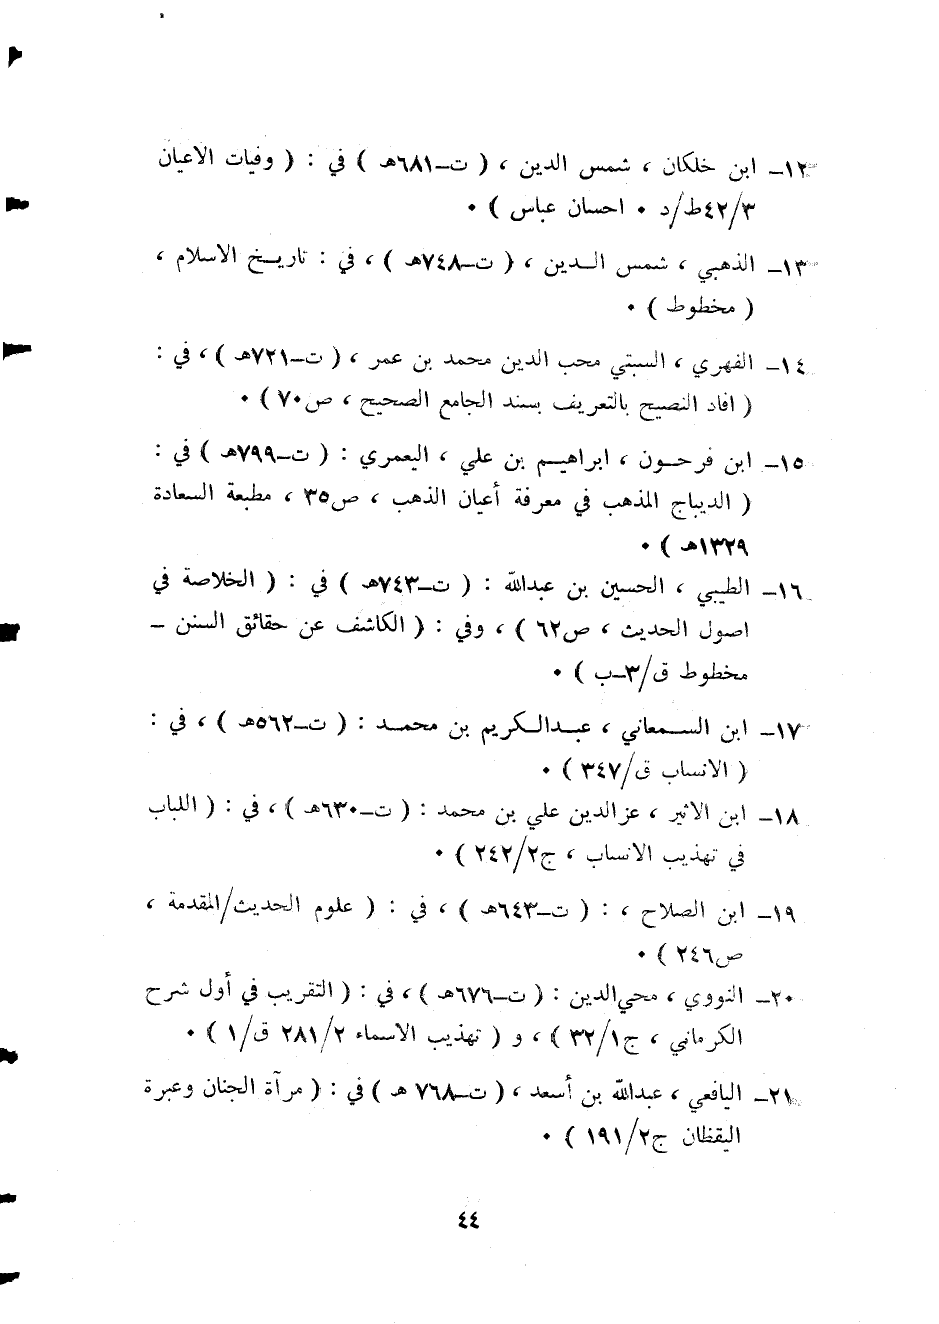 ١٢ــ ابن خلكان ، شمس الدين ، ( ت ــ٦٨١هـ ) في : ( وفيات الاعيان
٤٢/٣ط/د . احسان عباس ) .
١٣ــ الذهبي ، شمس الـدين ، ( ت ــ٧٤٨هـ ) ، في : تاريـخ الاسلام ،
( مخطوط ) .
١٤ــ الفهري ، السبتي محب الدين محمد بن عمر ، ( ت ــ٧٢١هـ ) ، في :
( افاد النصيح بالتعريف بسند الجامع الصحيح ، ص٧٠ ) .
١٥ــ ابن فرحـون ، ابراهيـم بن علي ، اليعمري : ( ت ــ٧٩٩هـ ) في :
( الديباج المذهب في معرفة أعيان الذهب ، ص٣٥ ، مطبعة السعادة
١٣٢٩هـ ) .
١٦ــ الطيبي ، الحسين بن عبدالله : ( ت ــ٧٤٣هـ ) في : ( الخلاصة في
اصول الحديث ، ص٦٢ ) ، وفي : ( الكاشف عن حقائق السنن ــ
مخطوط ق/٣ــب ) .
١٧ــ ابن السـمعاني ، عبـدالـكريم بن محمـد : ( ت ــ٥٦٢هـ ) ، في :
( الانساب ق/٣٤٧ ) .
١٨ــ ابن الاثير ، عزالدين علي بن محمد : ( ت ــ٦٣٠هـ ) ، في : ( اللباب
في تهذيب الانساب ، ج٢٤٢/٢ ) .
١٩ــ ابن الصلاح ، : ( ت ــ٦٤٣هـ ) ، في : ( علوم الحديث/المقدمة ،
ص٢٤٦ ) .
٢٠ــ النووي ، محي‌الدين : ( ت ــ٦٧٦هـ ) ، في : ( التقريب في أول شرح
الكرماني ، ج٣٢/١ ) ، و ( تهذيب الاسماء ٢٨١/٢ ق/١ ) .
٢١ــ اليافعي ، عبدالله بن أسعد ، ( ت ــ٧٦٨ هـ ) في : ( مرآة الجنان وعبرة
اليقظان ج١٩١/٢ ) .
٤٤